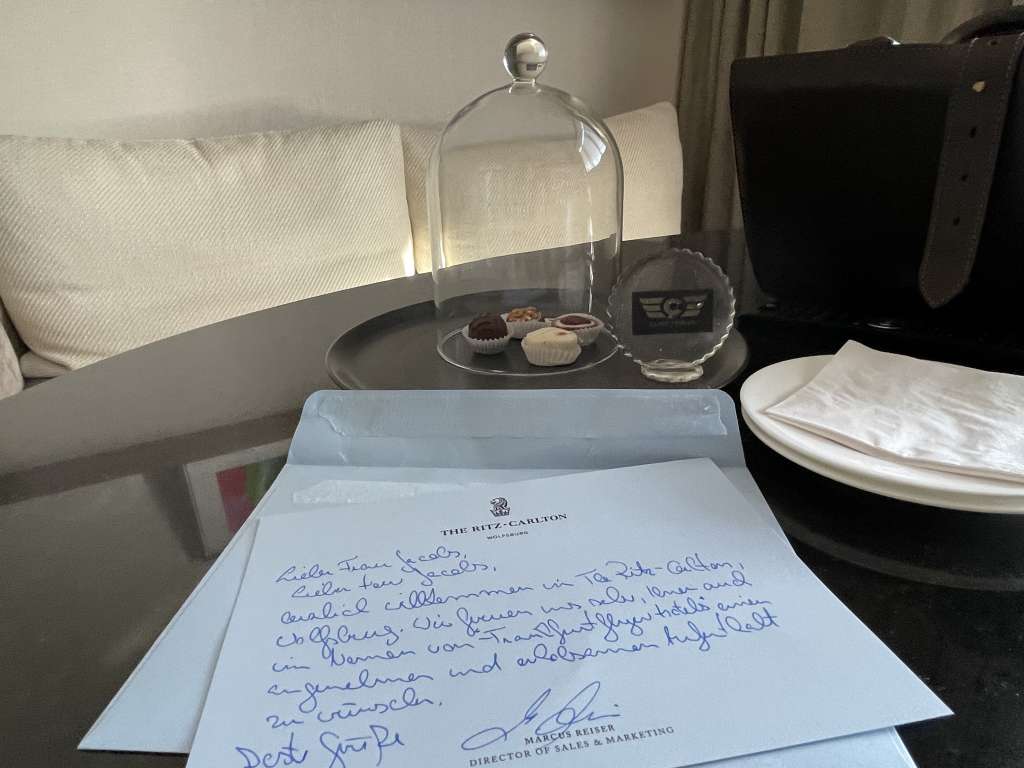 THE RITZ-CARLTON
WOLFSBURG
Lieber Frau Jacobs,
Lieber Herr Jacobs,
herzlich willkommen im The Ritz-Carlton,
Wolfsburg. Wir freuen uns sehr, Ihnen auch
im Namen von einen
angenehmen und erholsamen Aufenthalt
zu wünschen.
Beste Grüße
MARCUS REISER
DIRECTOR OF SALES & MARKETING